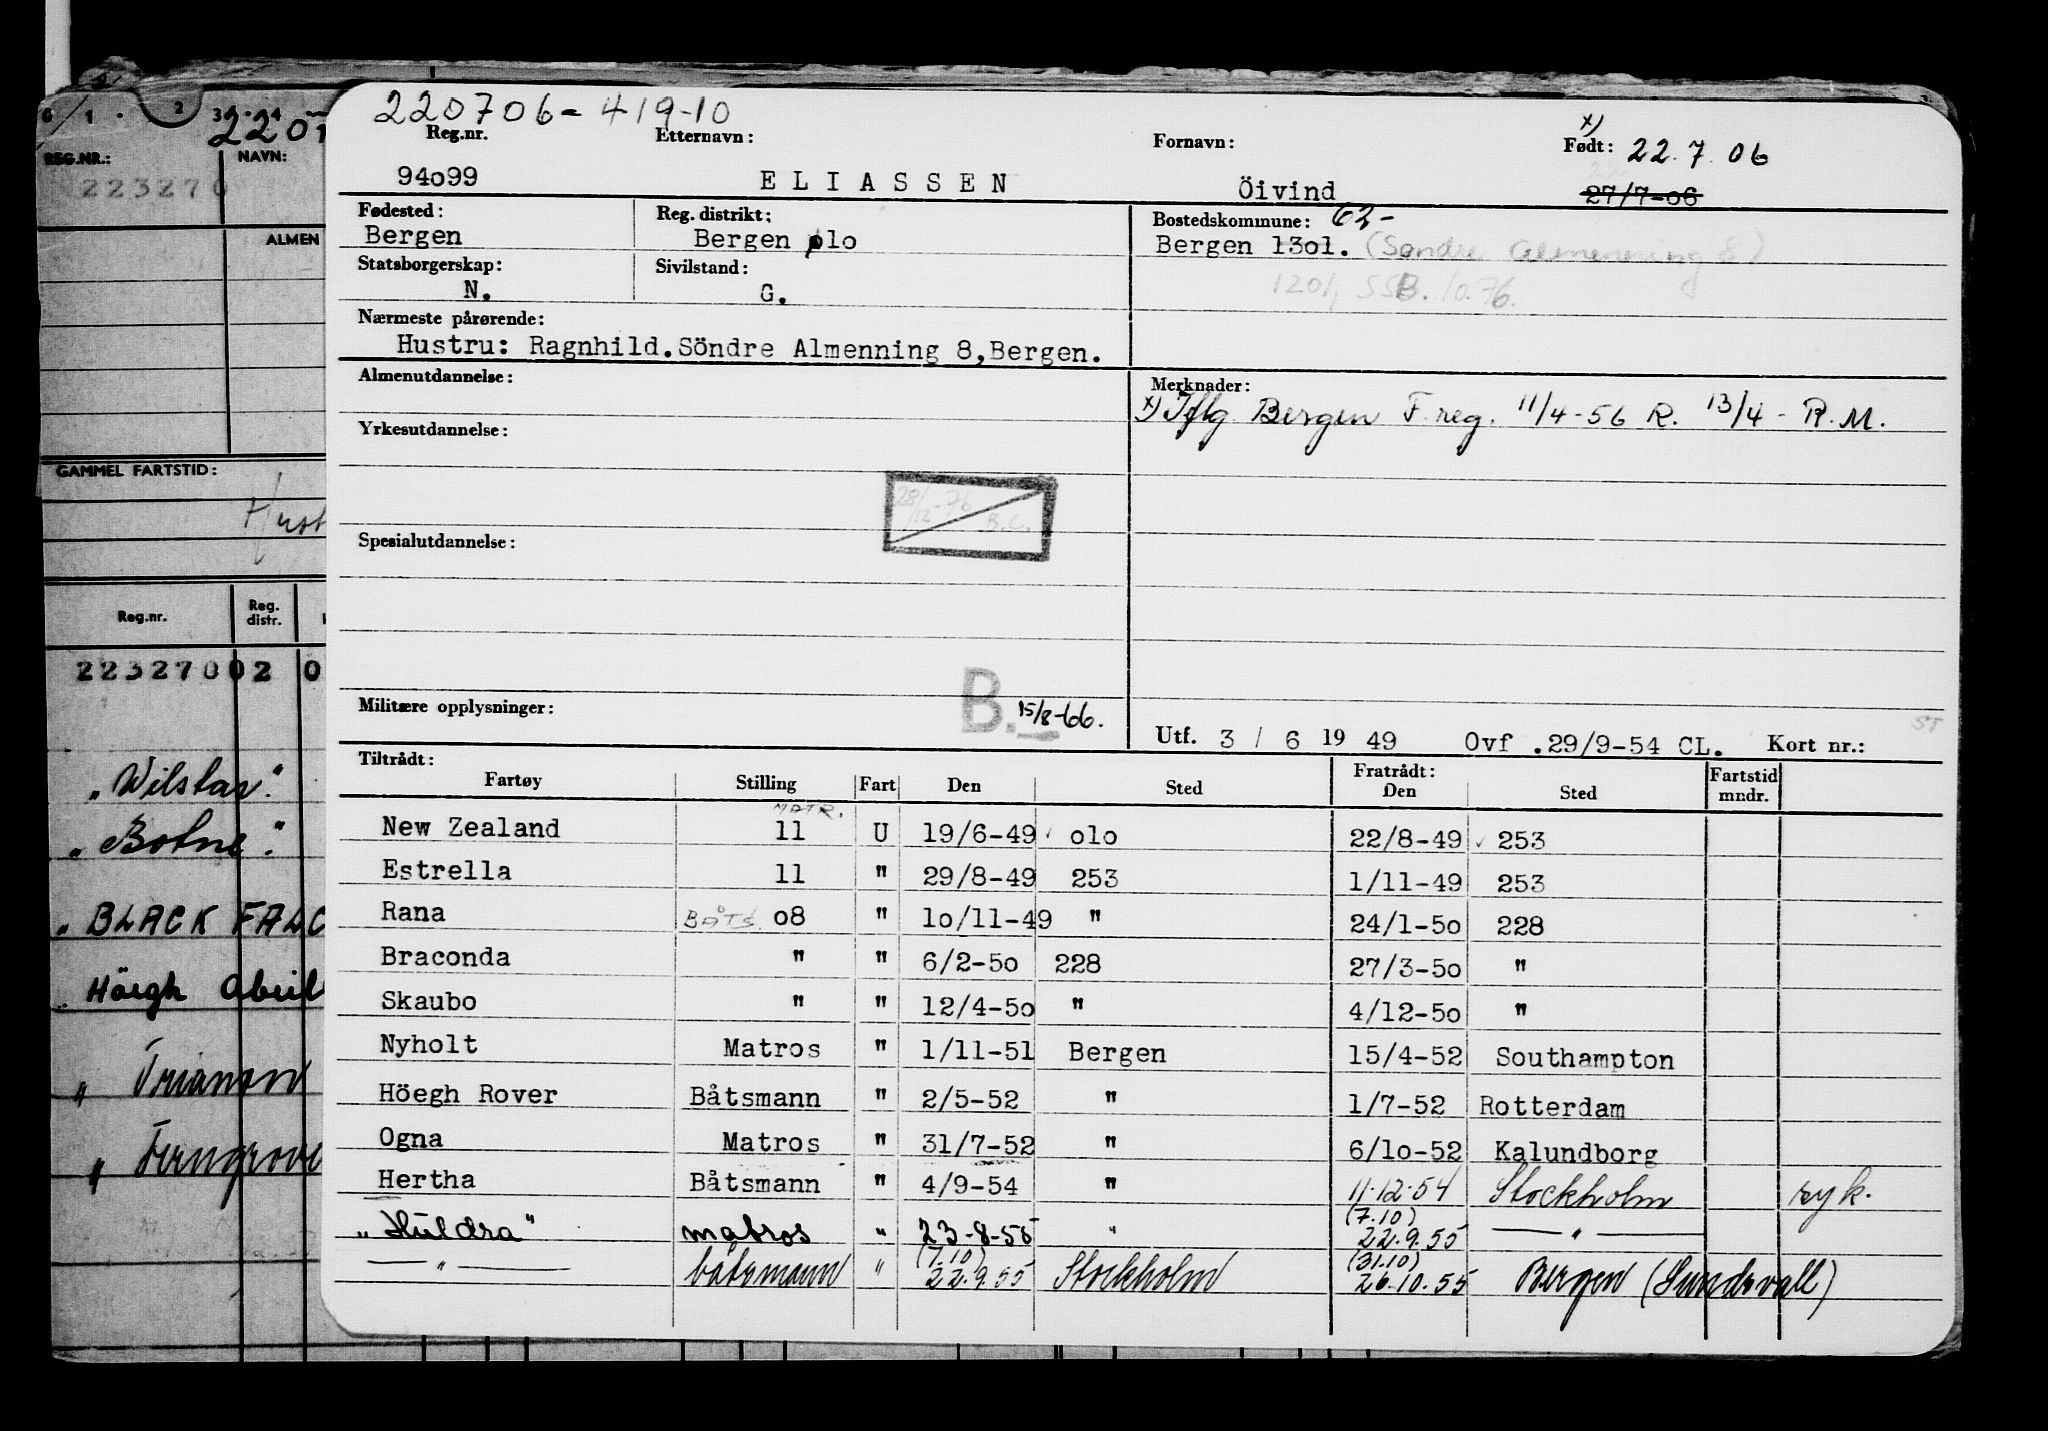 6 1 . 2 3 . 4
2207
REG.NR.: NAVN:
223270
ALMEN
GAMMEL FARTSTID:
Hust
Reg.nr. Reg. distr.
223270 02 0
"Wilstar"
"Botne"
" BLACK FALC
" Höegh
" Trianon
" Ferngrove
220706-419-10
Reg.nr. Etternavn: Fornavn: x) Født: 22.7.06
94o99 ELIASSEN Öivind 27/7-o6
Fødested: Reg. distrikt: Bostedskommune: 62-
Bergen Bergen olo Bergen 13o1. (Søndre Almenning 8)
Statsborgerskap: Sivilstand:
N. G. 1201, SSB. 10.76.
Nærmeste pårørende:
Hustru: Ragnhild. Söndre Almenning 8, Bergen.
Almenutdannelse: Merknader:
x) Iflg. Bergen F. reg. 11/4-56 R. 13/4 - R.M.
Yrkesutdannelse:
28/12-76 B.C.
Spesialutdannelse:
Militære opplysninger: B. 15/8-66.
Utf. 3 / 6 19 49 Ovf .29/9-54 CL. Kort nr.:
Tiltrådt: Fratrådt: Fartstid
Fartøy Stilling Fart Den Sted Den Sted mndr.
MATR.
New Zealand 11 U 19/6-49 olo 22/8-49 253
Estrella 11 " 29/8-49 253 1/11-49 253
Rana BÅTS. o8 " 1o/11-49 " 24/1-5o 228
Braconda " " 6/2-5o 228 27/3-5o "
Skaubo " " 12/4-5o " 4/12-5o "
Nyholt Matros " 1/11-51 Bergen 15/4-52 Southampton
Höegh Rover Båtsmann " 2/5-52 " 1/7-52 Rotterdam
Ogna Matros " 31/7-52 " 6/1o-52 Kalundborg
Hertha Båtsmann " 4/9-54 " 11.12.54 Stockholm syk.
(7.10)
"Huldra" matros " 23-8-55 " 22.9.55 — " —
(7.10) (31.10)
— " — båtsmann " 22.9.55 Stockholm 26.10.55 Bergen (Sundsvall)